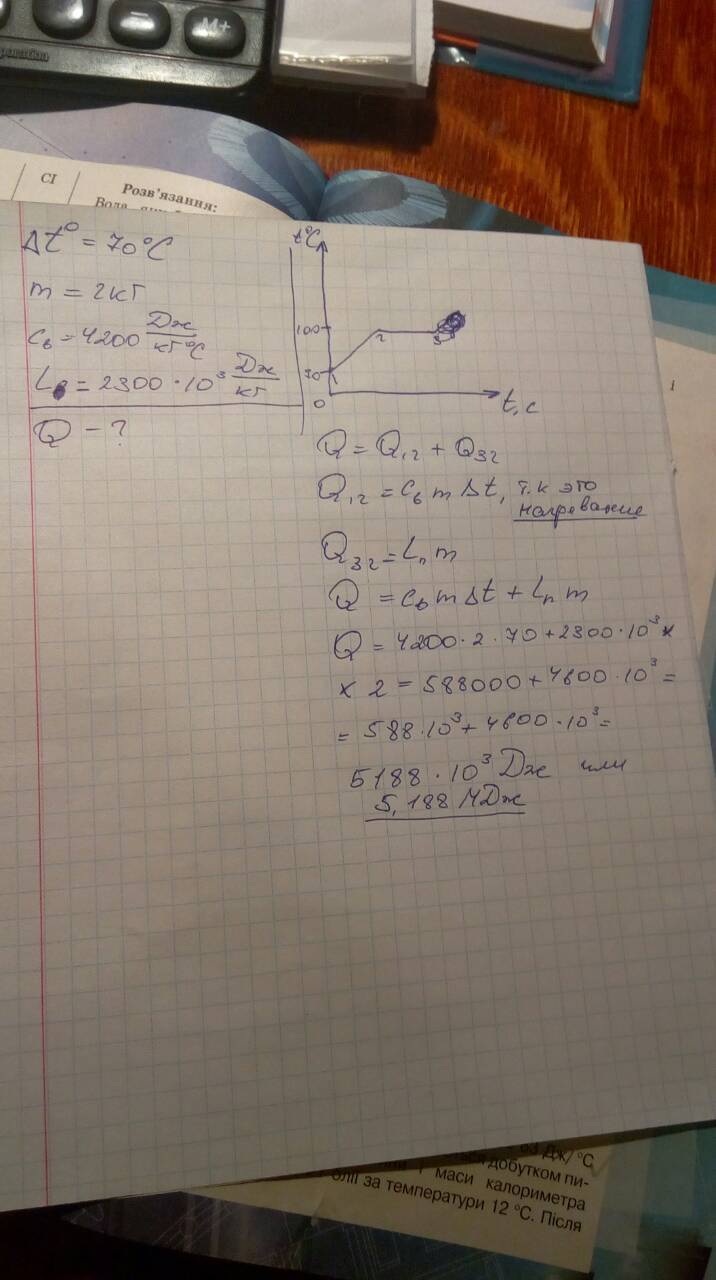 M+
CI
Розв'язання:
Δt° = 70°C
m = 2кг
cв = 4200 Дж/кг°C
L = 2300 · 10³ Дж/кг
Q - ?
t°C
100
2
3
30
1
0
t, c
Q = Q12 + Q32
Q12 = cв m Δt, т.к это
нагревание
Q32 = Lп m
Q = cв m Δt + Lп m
Q = 4200 · 2 · 70 + 2300 · 10³ ×
× 2 = 588000 + 4600 · 10³ =
= 588 · 10³ + 4600 · 10³ =
5188 · 10³ Дж или
5,188 МДж
Дж/°C
добутком пи-
маси калориметра
олії за температури 12 °C. Після